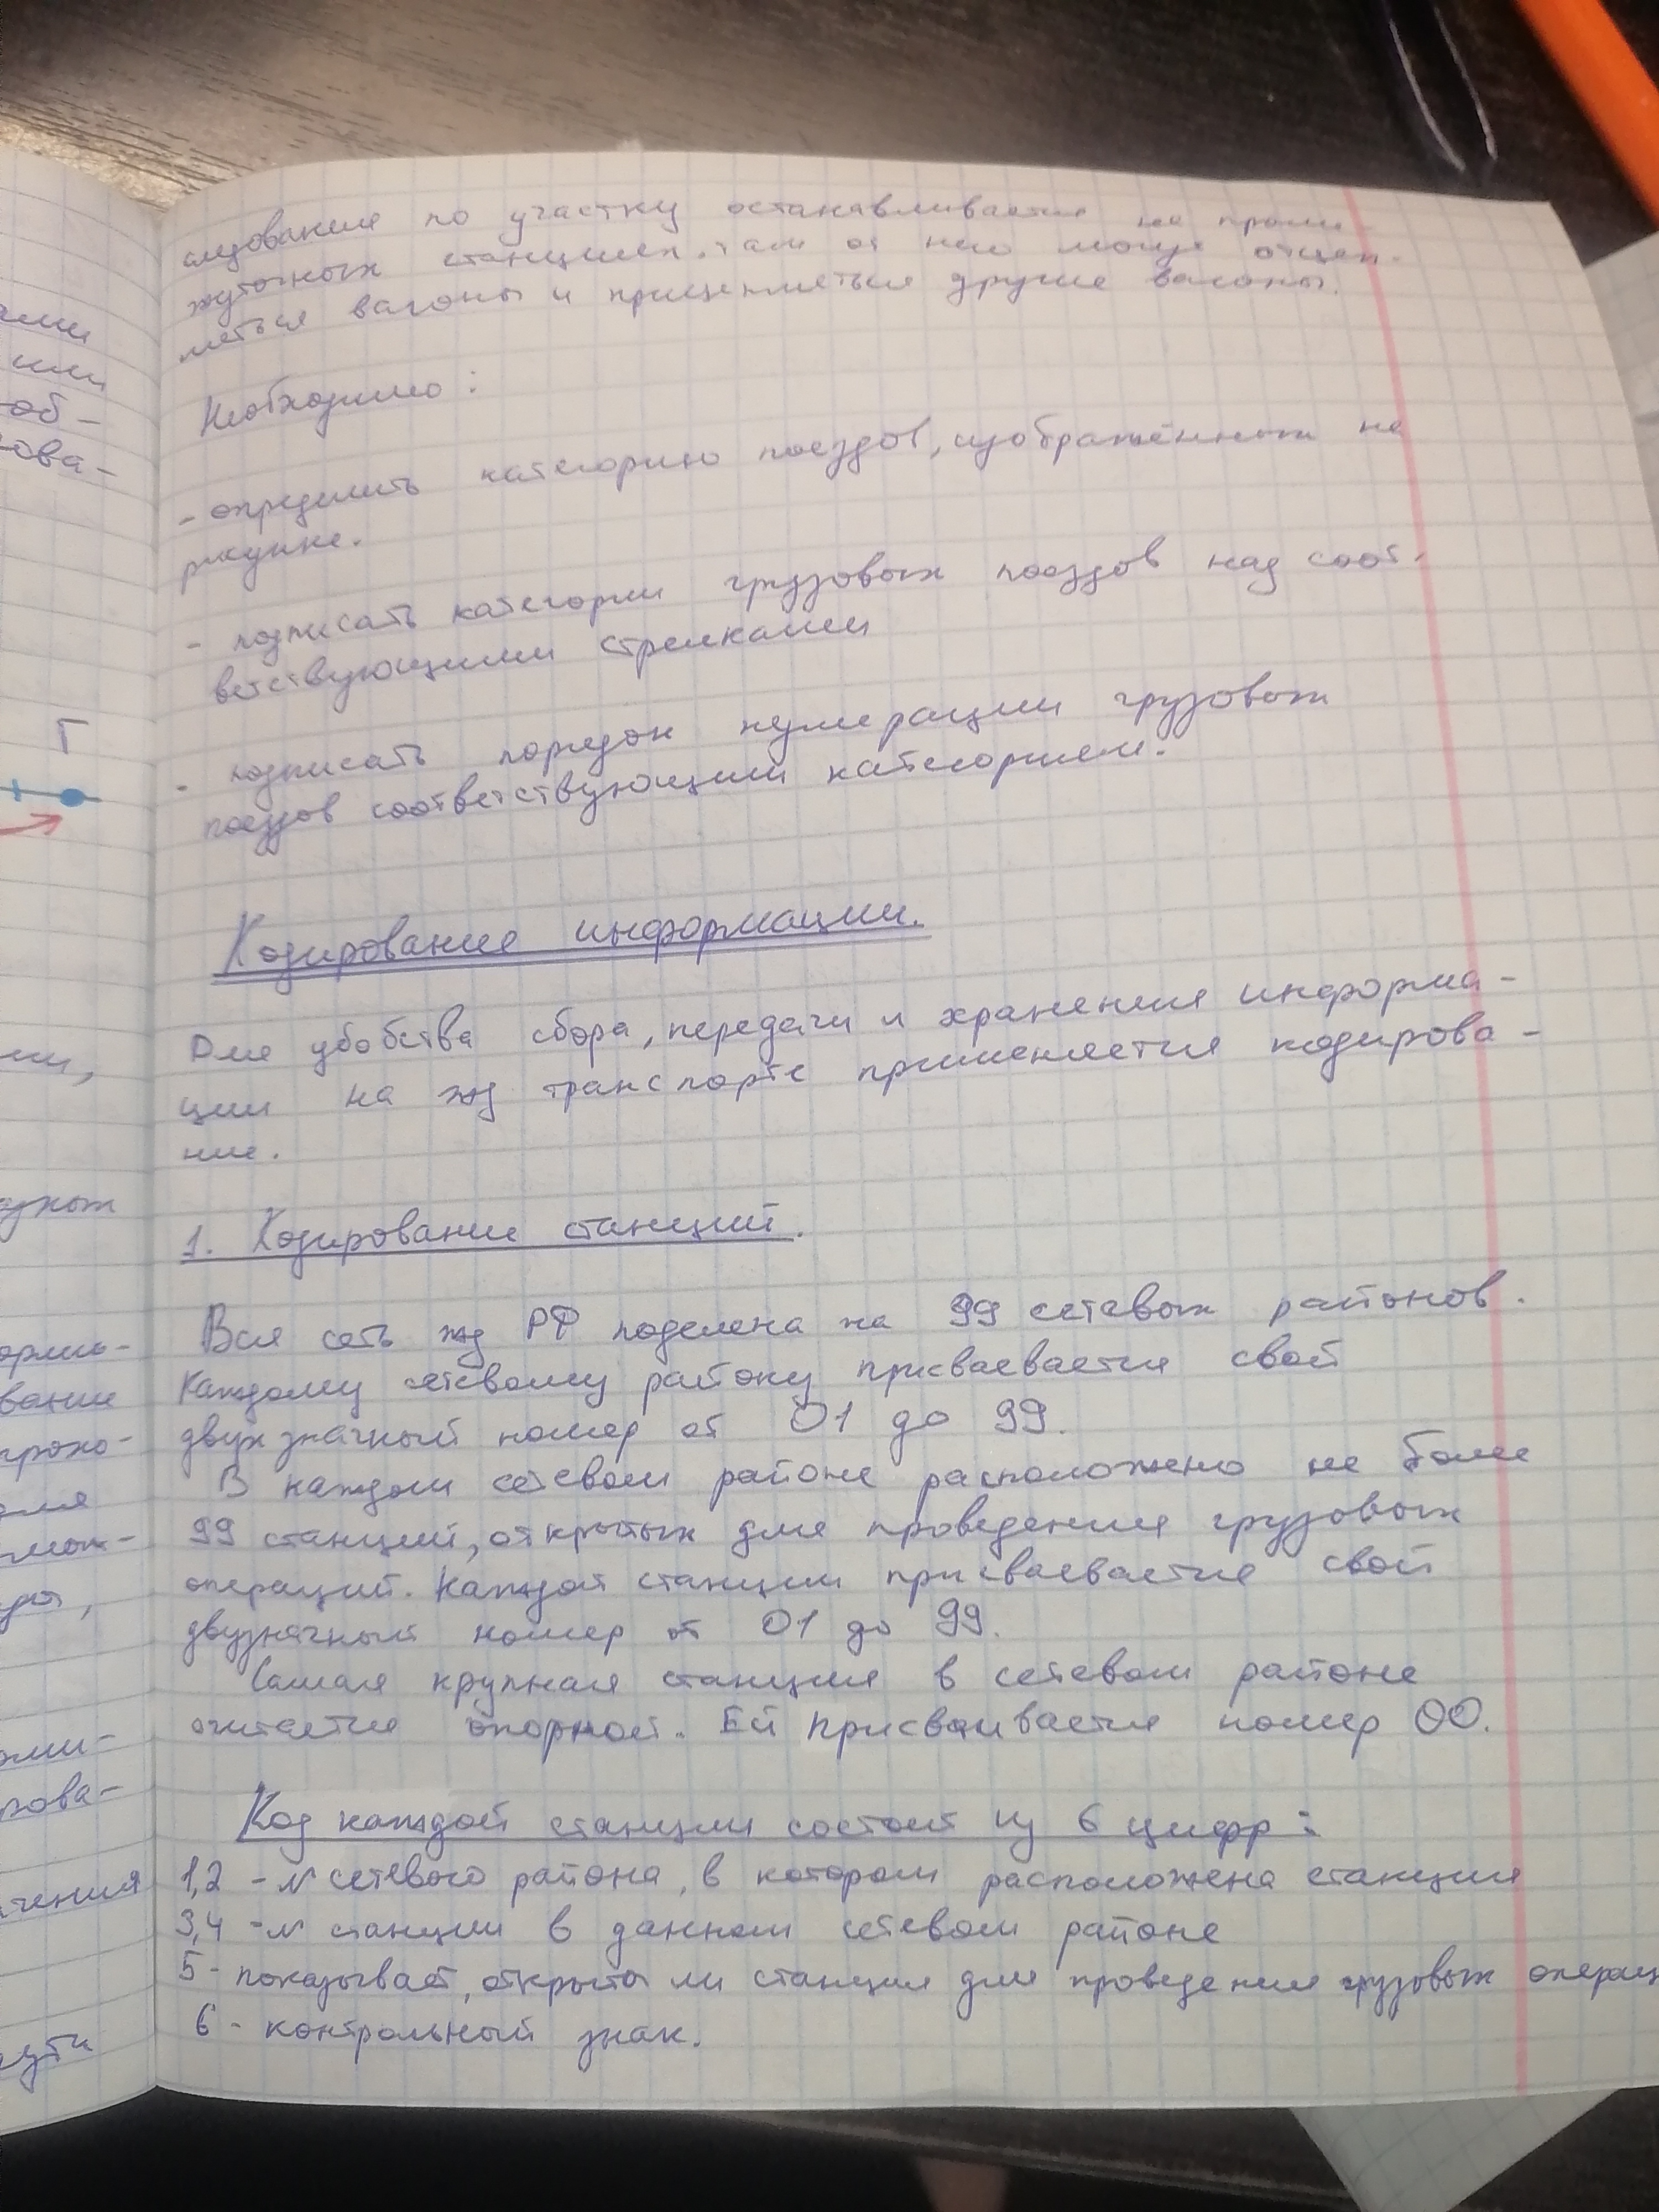 следования по участку останавливается на проме-
жуточных станциях. там от него могут отцеп-
ляться вагоны и прицепляться другие вагоны.
Необходимо:
- определить категорию поездов, изображённых на
рисунке.
- подписать категории грузовых поездов над соот-
ветствующими стрелками
- подписать порядок нумерации грузовых
поездов соответствующим категориям.
Кодирование информации.
Для удобства сбора, передачи и хранения информа-
ции на жд транспорте применяется кодирова-
ние.
1. Кодирование станций.
Вся сеть жд РФ поделена на 99 сетевых районов.
Каждому сетевому району присваевается свой
двухзначный номер от 01 до 99.
В каждом сетевом районе расположено не более
99 станций, открытых для проведения грузовых
операций. Каждой станции присваевается свой
двузначный номер от 01 до 99.
Самая крупная станция в сетевом районе
считается опорной. Ей присваивается номер 00.
Код каждой станции состоит из 6 цифр:
1,2 - N сетевого района, в котором расположена станция
3,4 - N станции в данном сетевом районе
5 - показывает, открыта ли станция для проведения грузовых операц
6 - контрольный знак.
Г